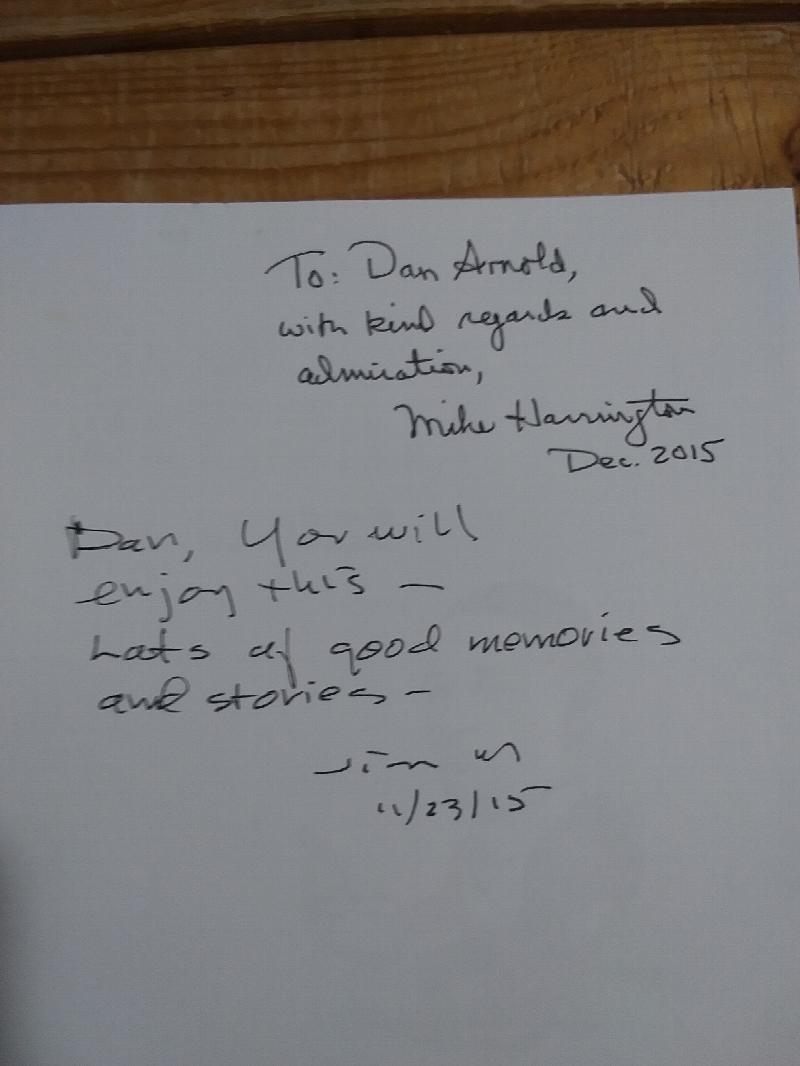 To: Dan Arnold,
with kind regards and
admiration,
Mike Harrington
Dec. 2015
Dan, You will
enjoy this —
Lots of good memories
and stories -
Jim
11/23/15